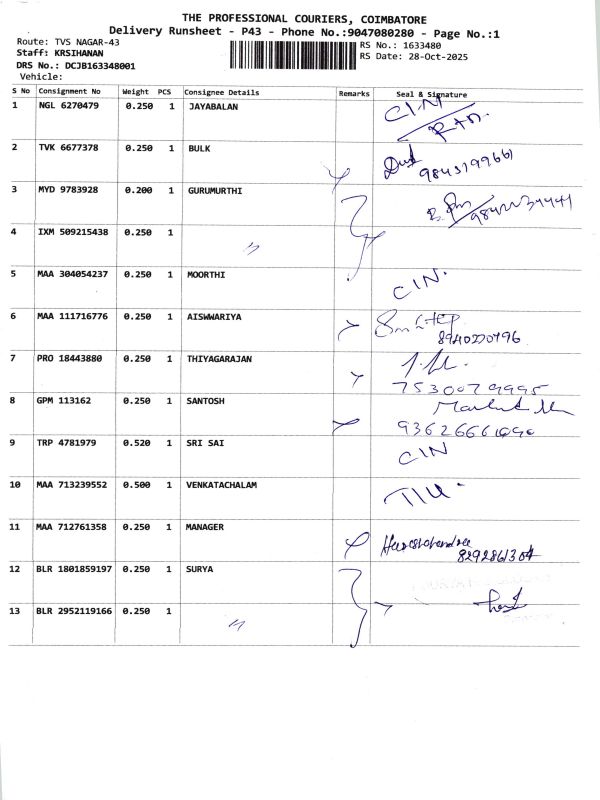 THE PROFESSIONAL COURIERS, COIMBATORE
Delivery Runsheet - P43 - Phone No.:9047080280 - Page No.:1
Route: TVS NAGAR-43
RS No.: 1633480
Staff: KRSIHANAN
RS Date: 28-Oct-2025
DRS No.: DCJB163348001
Vehicle:
S No Consignment No Weight PCS Consignee Details Remarks Seal & Signature
1 NGL 6270479 0.250 1 JAYABALAN CIN
2 TVK 6677378 0.250 1 BULK
9843199661
3 MYD 9783928 0.200 1 GURUMURTHI
4 IXM 509215438 0.250 1 "
5 MAA 304054237 0.250 1 MOORTHI CIN.
6 MAA 111716776 0.250 1 AISWWARIYA
8940220796
7 PRO 18443880 0.250 1 THIYAGARAJAN
7530079995
8 GPM 113162 0.250 1 SANTOSH
9 TRP 4781979 0.520 1 SRI SAI CIN
10 MAA 713239552 0.500 1 VENKATACHALAM
11 MAA 712761358 0.250 1 MANAGER
8292861304
12 BLR 1801859197 0.250 1 SURYA
13 BLR 2952119166 0.250 1 "